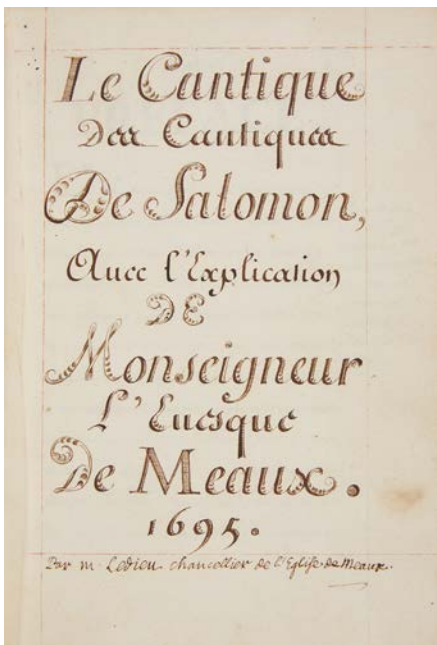 Le Cantique
Des Cantiques
De Salomon,
Auec l'Explication
DE
Monseigneur
L'Euesque
De Meaux.
1695.
Par m. Ledieu chancellier de l'Eglise de Meaux.